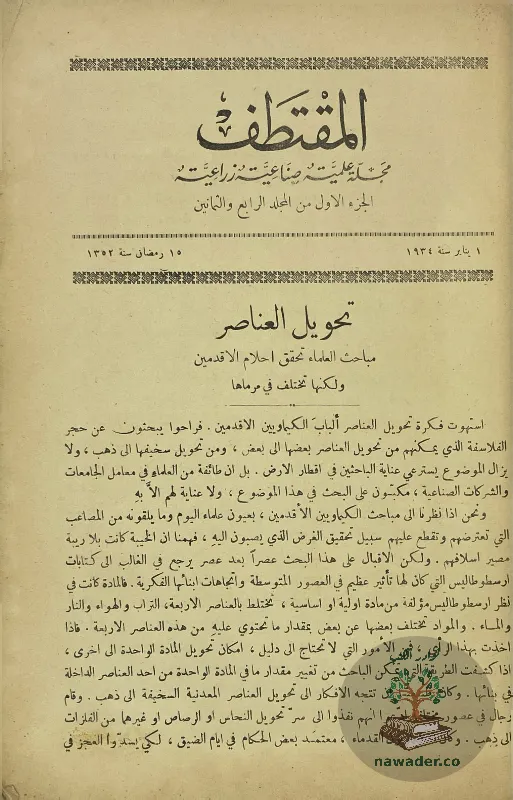 المقتطف
مجلة علمية صناعية زراعية
الجزء الاول من المجلد الرابع والثمانين
١ يناير سنة ١٩٣٤
١٥ رمضان سنة ١٣٥٢
تحويل العناصر
مباحث العلماء تحقق احلام الاقدمين
ولكنها تختلف في مرماها
استهوت فكرة تحويل العناصر ألبابَ الكيماويين الاقدمين . فراحوا يبحثون عن حجر
الفلاسفة الذي يمكنهم من تحويل العناصر بعضها الى بعض ، ومن تحويل سخيفها الى ذهب ، ولا
يزال الموضوع يسترعي عناية الباحثين في اقطار الارض . بل ان طائفة من العلماء في معامل الجامعات
والشركات الصناعية ، مكبّون على البحث في هذا الموضوع ، ولا عناية لهم الاَّ به
ونحن اذا نظرنا الى مباحث الكيماويين الاقدمين ، بعيون علماء اليوم وما يلقونه من المصاعب
التي تعترضهم وتقطع عليهم سبيل تحقيق الغرض الذي يصبون اليه ، فهمنا ان الخيبة كانت بلا ريبة
مصير اسلافهم . ولكن الاقبال على هذا البحث عصراً بعد عصر يرجع في الغالب الى كتابات
ارسطوطاليس التي كان لها تأثير عظيم في العصور المتوسطة واتجاهات ابنائها الفكرية . فالمادة كانت في
نظر ارسطوطاليس مؤلفة من مادة اولية او اساسية ، تختلط بالعناصر الاربعة، التراب والهواء والنار
والماء . والمواد تختلف بعضها عن بعض بمقدار ما تحتوي عليه من هذه العناصر الاربعة . فاذا
اخذت بهذا الرأي الأمور التي لا تحتاج الى دليل ، امكان تحويل المادة الواحدة الى اخرى ،
اذا كشفت الطريقة التي يمكن الباحث من تغيير مقدار ما في المادة الواحدة من احد العناصر الداخلة
في بنائها . وكان تتجه الافكار الى تحويل العناصر المعدنية السخيفة الى ذهب . وقام
رجال في عصور انهم نفذوا الى سرّ تحويل النحاس او الرصاص او غيرهما من الفلزات
الى ذهب . القدماء ، معتمَد بعض الحكام في ايام الضيق ، لكي يسدّوا العجز في
nawader.co